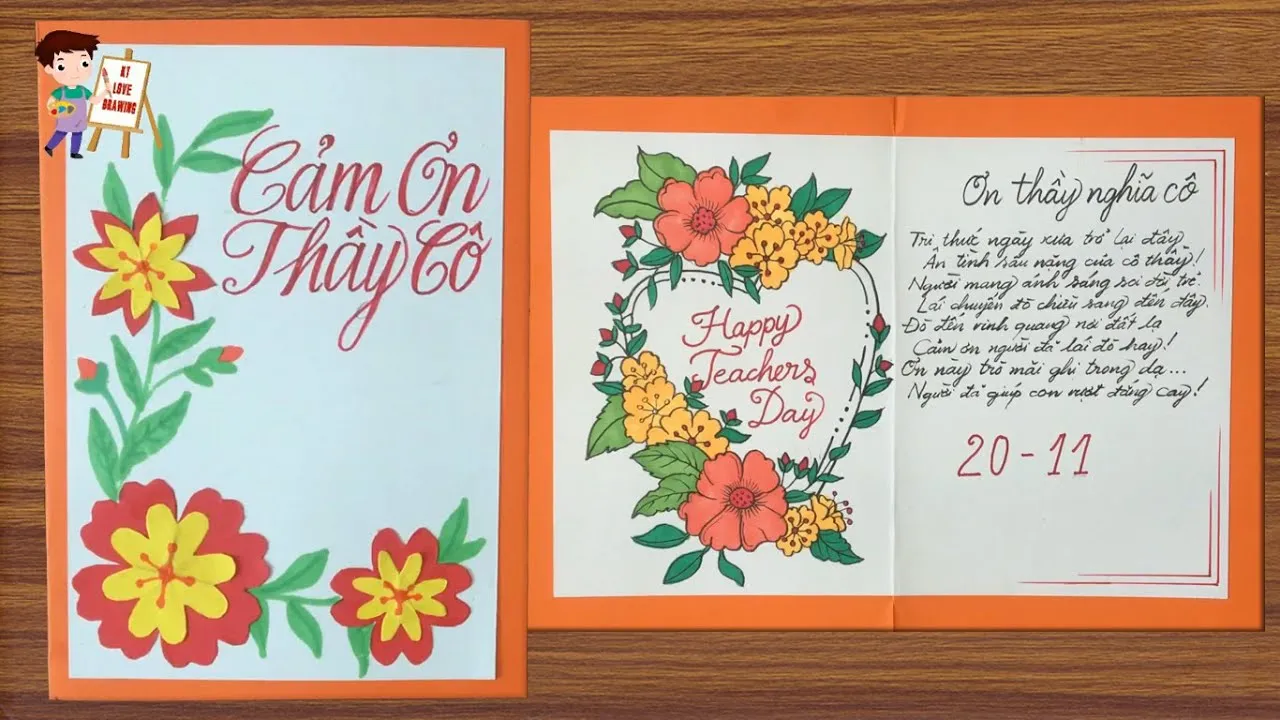 KT
LOVE
DRAWING
Cảm Ơn
Thầy Cô
Happy
Teachers
Day
Ơn thầy nghĩa cô
Tri thức ngày xưa trở lại đây
Ân tình sâu nặng của cô thầy!
Người mang ánh sáng soi đời trẻ
Lái chuyến đò chiều sang đến đây.
Đò đến vinh quang nơi đất lạ
Cảm ơn người đã lái đò hay!
Ơn này trò mãi ghi trong dạ...
Người đã giúp con vượt đắng cay!
20-11